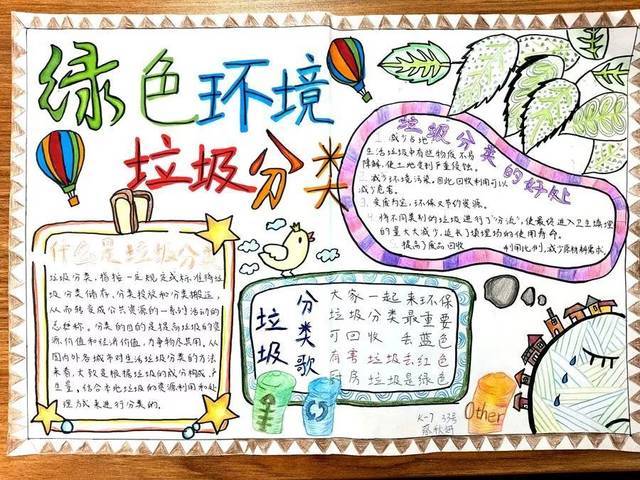 绿色环境
垃圾分类
垃圾分类的好处
1. 减少占地
生活垃圾中有些物质不易
降解,使土地受到严重侵蚀。
减少环境污染。因此回收利用可以
减少危害。
3. 变废为宝,环保又节约资源。
4. 将不同类别的垃圾进行了“分流”,使最终进入卫生填埋
的量大大减少,延长了填埋场的使用寿命。
提高了废品回收 利用比例,减少原材料需求
什么是垃圾分
垃圾分类,指按一定规定或标准将垃
圾分类储存、分类投放和分类搬运,
从而转变成公共资源的一系列活动的
总称。分类的目的是提高垃圾的资
源价值和经济价值,力争物尽其用。从
国内外各城市对生活垃圾分类的方法
来看,大致是根据垃圾的成分构成、产
生量,结合本地垃圾的资源利用和处
理方式来进行分类的。
垃圾分类歌
大家一起来环保
垃圾分类最重要
可回收 去蓝色
有害垃圾去红色
厨房垃圾是绿色
Other
K-7 33号